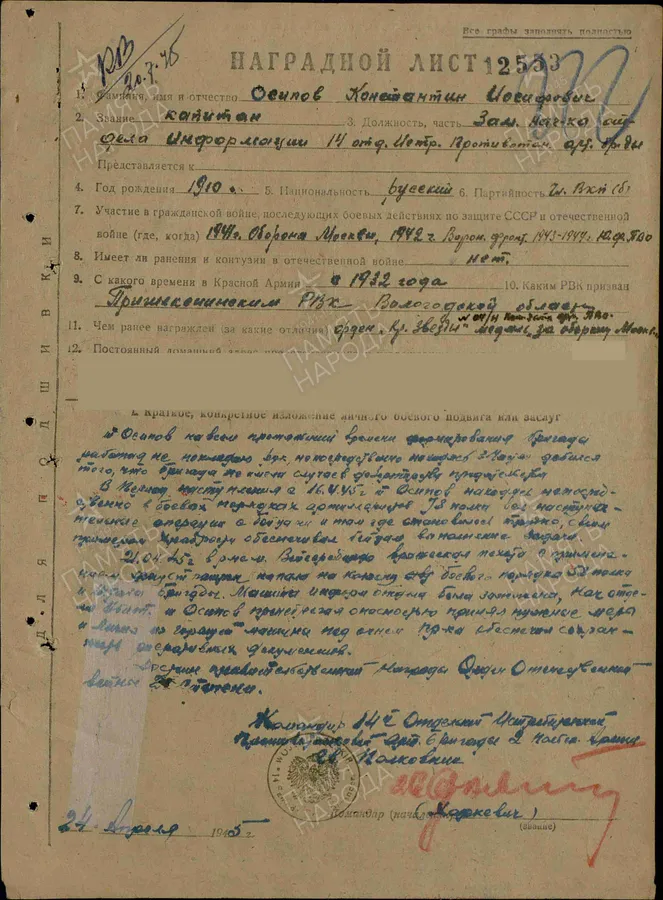 Все графы заполнять полностью
РВ
20.7.45
НАГРАДНОЙ ЛИСТ 12553
1. Фамилия, имя и отчество Осипов Константин Иосифович
2. Звание капитан 3. Должность, часть Зам. Нач-ка от
дела Информации 14 отд. Истр. Противотан. арт. бр-ды
Представляется к
4. Год рождения 1910 5. Национальность русский 6. Партийность Чл. ВКП(б)
7. Участие в гражданской войне, последующих боевых действиях по защите СССР и отечественной
войне (где, когда) 1941г. Оборона Москвы, 1942 г. Ворон. фронт. 1943-1944г.
8. Имеет ли ранения и контузии в отечественной войне нет.
9. С какого времени в Красной Армии с 1932 года 10. Каким РВК призван
РВК Вологодской области
11. Чем ранее награжден (за какие отличия) орден "Кр. Звезды" медаль "за оборону Москвы"
12. Постоянный домашний адрес
I. Краткое, конкретное изложение личного боевого подвига или заслуг
т Осипов на всем протяжении времени формирования бригады
работал не покладая рук, непосредственно
того, что бригада не имела случаев
В период наступления с 16.4.45г т Осипов находясь непосред-
ственно в боевых порядках
операции с боями и там где становилось трудно, своим
примером храбрости обеспечивал выполнение задачи.
21.04.45г в р-не м. вражеская пехота с применени-
ем напала на колонну боевого порядка полка
и штаба бригады. Машина была Нач. отде-
ла и Осипов опасностью принял нужные меры
и лично из горящей машины под огнем обеспечил сохран-
ность оперативных документов.
правительственной награды Орден Отечественной
войны 2 степени.
Командир 14й Отдельной Истребительной
Противотанковой Арт. бригады 2 Армии
Полковник
Командир (нач (Харкевич)
(звание)
24 Апреля 1945г.
ДЛЯ ПОДШИВКИ
ПАМЯТЬ НАРОДА